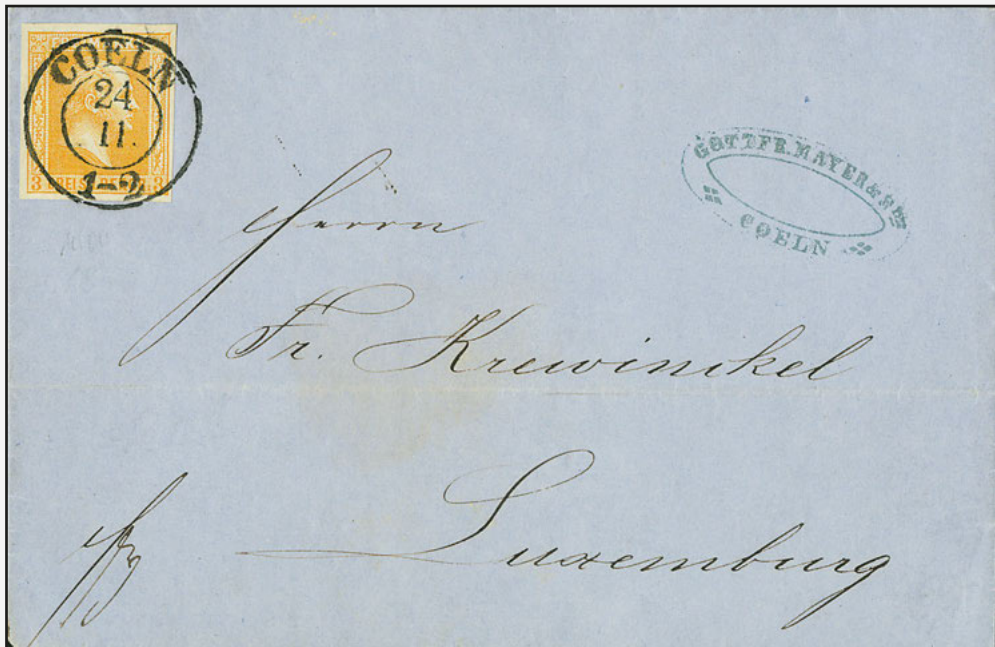 COELN
24
11.
1-2
3 3
GOTTFR. MAYER &
COELN
Herrn
Fr. Krewinckel
Luxemburg